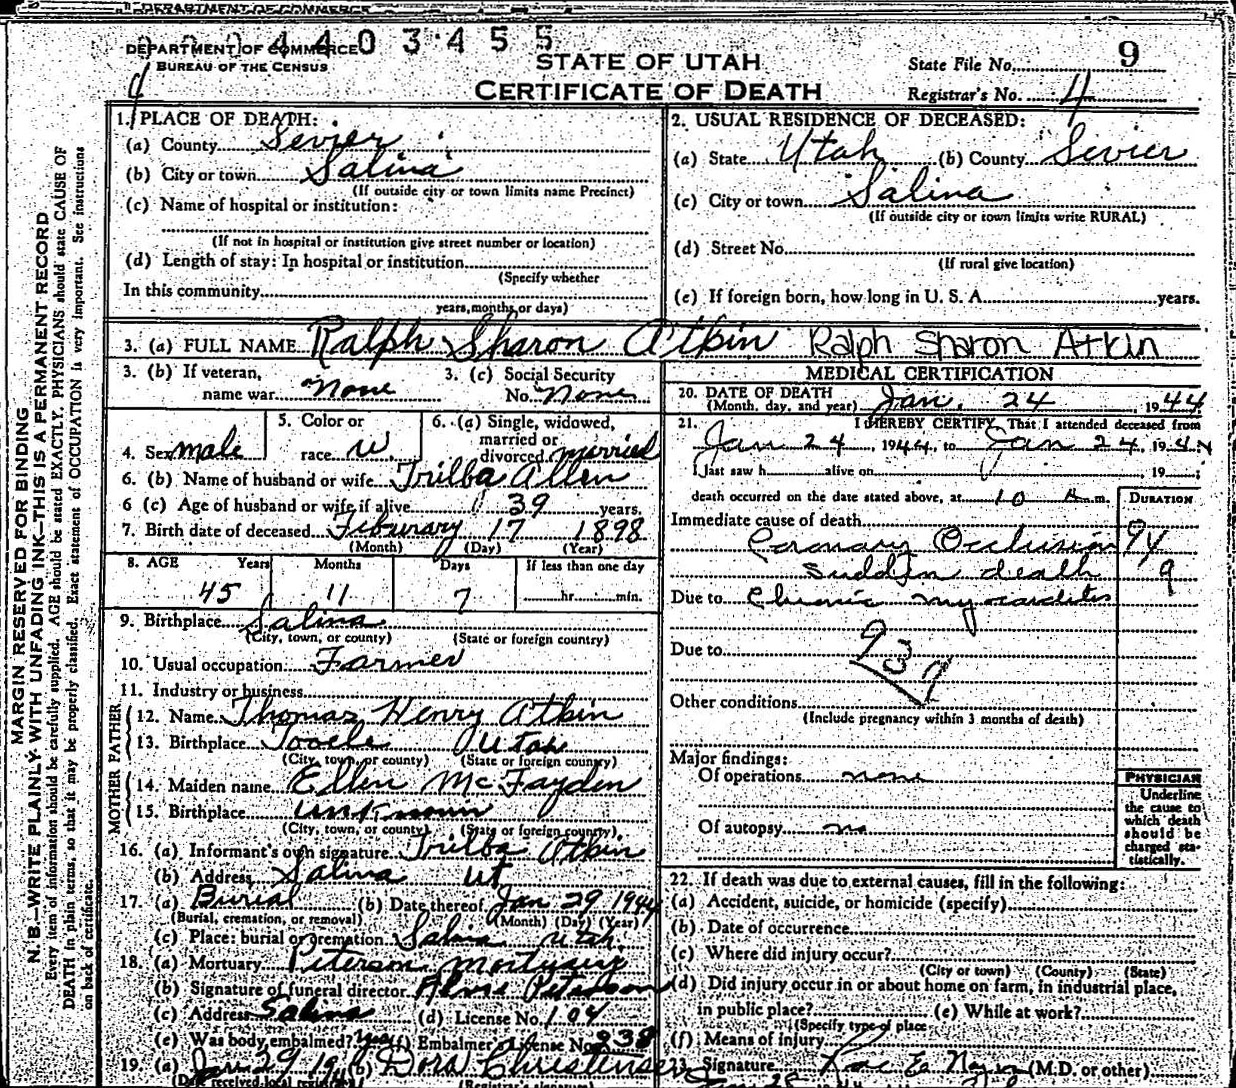 DEPARTMENT OF COMMERCE
0 3 4 5 5
DEPARTMENT OF COMMERCE
BUREAU OF THE CENSUS
4
STATE OF UTAH
CERTIFICATE OF DEATH
State File No. 9
Registrar's No. 4
1. PLACE OF DEATH:
(a) County Sevier
(b) City or town Salina
(If outside city or town limits name Precinct)
(c) Name of hospital or institution:
(If not in hospital or institution give street number or location)
(d) Length of stay: In hospital or institution
(Specify whether
In this community
years, months, or days)
2. USUAL RESIDENCE OF DECEASED:
(a) State Utah (b) County Sevier
(c) City or town Salina
(If outside city or town limits write RURAL)
(d) Street No.
(If rural give location)
(e) If foreign born, how long in U. S. A. years.
3. (a) FULL NAME Ralph Sharon Atkin Ralph Sharon Atkin
3. (b) If veteran, name war None
3. (c) Social Security No. None
4. Sex male
5. Color or race W
6. (a) Single, widowed, married or divorced married
6. (b) Name of husband or wife Trilba Allen
6 (c) Age of husband or wife if alive 39 years.
7. Birth date of deceased Feburary 17 1898
(Month) (Day) (Year)
8. AGE Years Months Days If less than one day
45 11 7 hr. min.
9. Birthplace Salina
(City, town, or county) (State or foreign country)
10. Usual occupation Farmer
11. Industry or business
FATHER
12. Name Thomas Henry Atkin
13. Birthplace Tooele Utah
(City, town, or county) (State or foreign country)
MOTHER
14. Maiden name Ellen McFayden
15. Birthplace unknown
(City, town, or county) (State or foreign country)
16. (a) Informant's own signature Trilba Atkin
(b) Address Salina Ut
17. (a) Burial (b) Date thereof Jan 29 1944
(Burial, cremation, or removal) (Month) (Day) (Year)
(c) Place: burial or cremation Salina Utah.
18. (a) Mortuary Peterson Mortuary
(b) Signature of funeral director Alma Peterson
(c) Address Salina (d) License No. 104
(e) Was body embalmed? Yes (f) Embalmer's License No. 238
19. (a) Jan 29 1944 (b) Dora Christensen
(Date received local registrar) (Registrar's signature)
MEDICAL CERTIFICATION
20. DATE OF DEATH
(Month, day, and year) Jan. 24, 1944
21. I HEREBY CERTIFY, That I attended deceased from
Jan 24, 1944, to Jan 24, 1944
I last saw h alive on 19 ;
death occurred on the date stated above, at 10 A m.
DURATION
Immediate cause of death
Coronary Occlusion 94
sudden death 9
Due to Chronic myocarditis
Due to 937
Other conditions
(Include pregnancy within 3 months of death)
Major findings:
Of operations none
Of autopsy no
PHYSICIAN
Underline
the cause to
which death
should be
charged sta-
tistically.
22. If death was due to external causes, fill in the following:
(a) Accident, suicide, or homicide (specify)
(b) Date of occurrence
(c) Where did injury occur?
(City or town) (County) (State)
(d) Did injury occur in or about home on farm, in industrial place,
in public place? (e) While at work?
(Specify type of place
(f) Means of injury
23. Signature Rae E. (M.D. or other)
MARGIN RESERVED FOR BINDING
N. B.—WRITE PLAINLY WITH UNFADING INK—THIS IS A PERMANENT RECORD
Every item of information should be carefully supplied. AGE should be stated EXACTLY. PHYSICIANS should state CAUSE OF
DEATH in plain terms, so that it may be properly classified. Exact statement of OCCUPATION is very important. See instructions
on back of certificate.